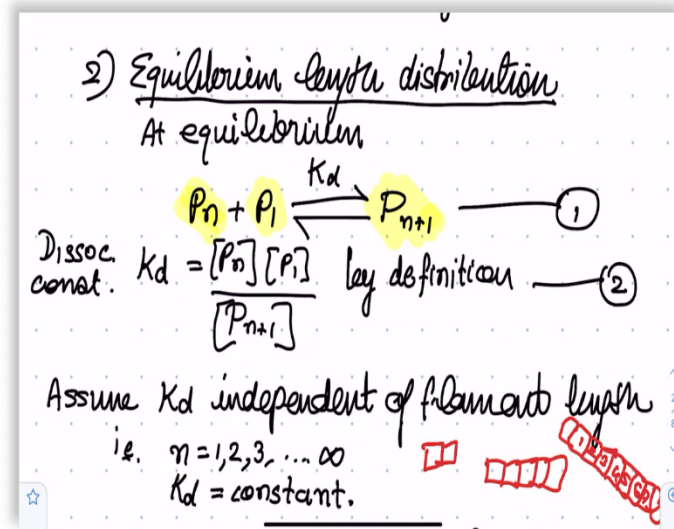 2) Equilibrium length distribution
At equilibrium
Kd
Pn + P1 Pn+1 ①
Dissoc. const. Kd = [Pn][P1] / [Pn+1] by definition ②
Assume Kd independent of filament length
ie. n = 1,2,3, .... ∞
Kd = constant.
1 2 3 4 5 6